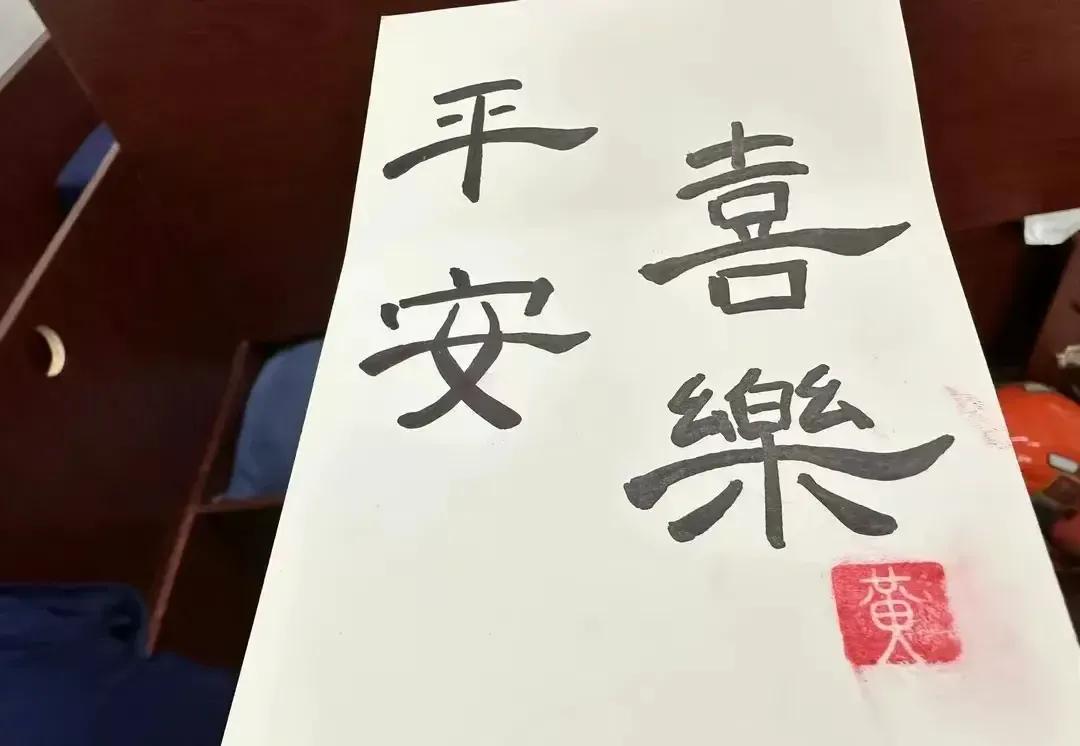 平安
喜樂
黄